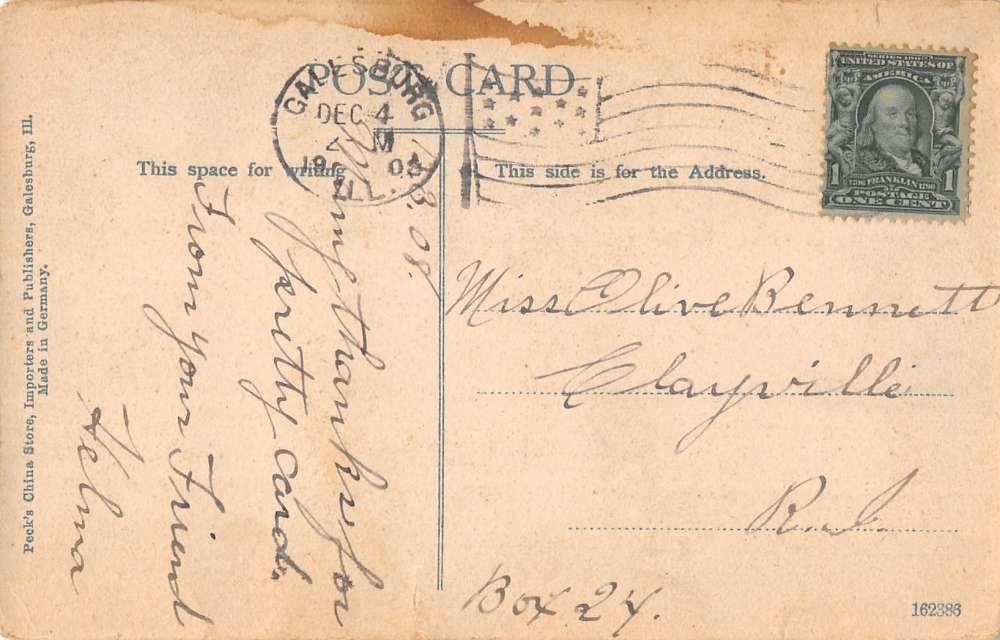 POST CARD
GALESBURG
DEC 4
M
1908
ILL.
SERIES 1902
UNITED STATES OF
AMERICA
1 FRANKLIN 1
POSTAGE
ONE CENT
This space for writing
This side is for the Address.
3.08.
Many thanks for
pretty card.
From your Friend
Helma
Miss Olive Bennett
Clayville
R.I.
Box 24.
Peck's China Store, Importers and Publishers, Galesburg, Ill.
Made in Germany.
162386